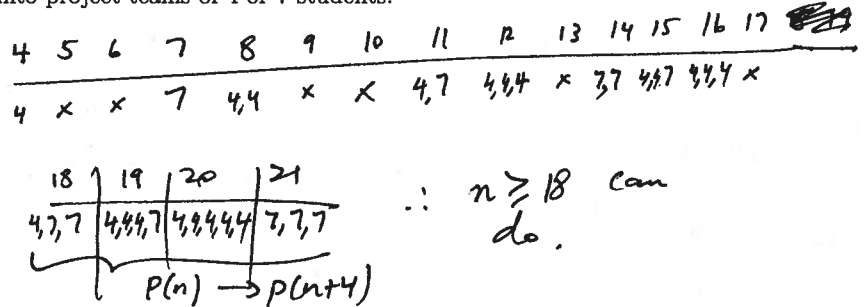 into project teams of 4 or 7 students.
4 5 6 7 8 9 10 11 12 13 14 15 16 17
4 x x 7 4,4 x x 4,7 4,4,4 x 7,7 4,4,7 4,4,4,4 x
18 | 19 | 20 | 21
4,7,7 | 4,4,4,7 | 4,4,4,4,4 | 7,7,7
∴ n ≥ 18 can
do.
P(n) → P(n+4)